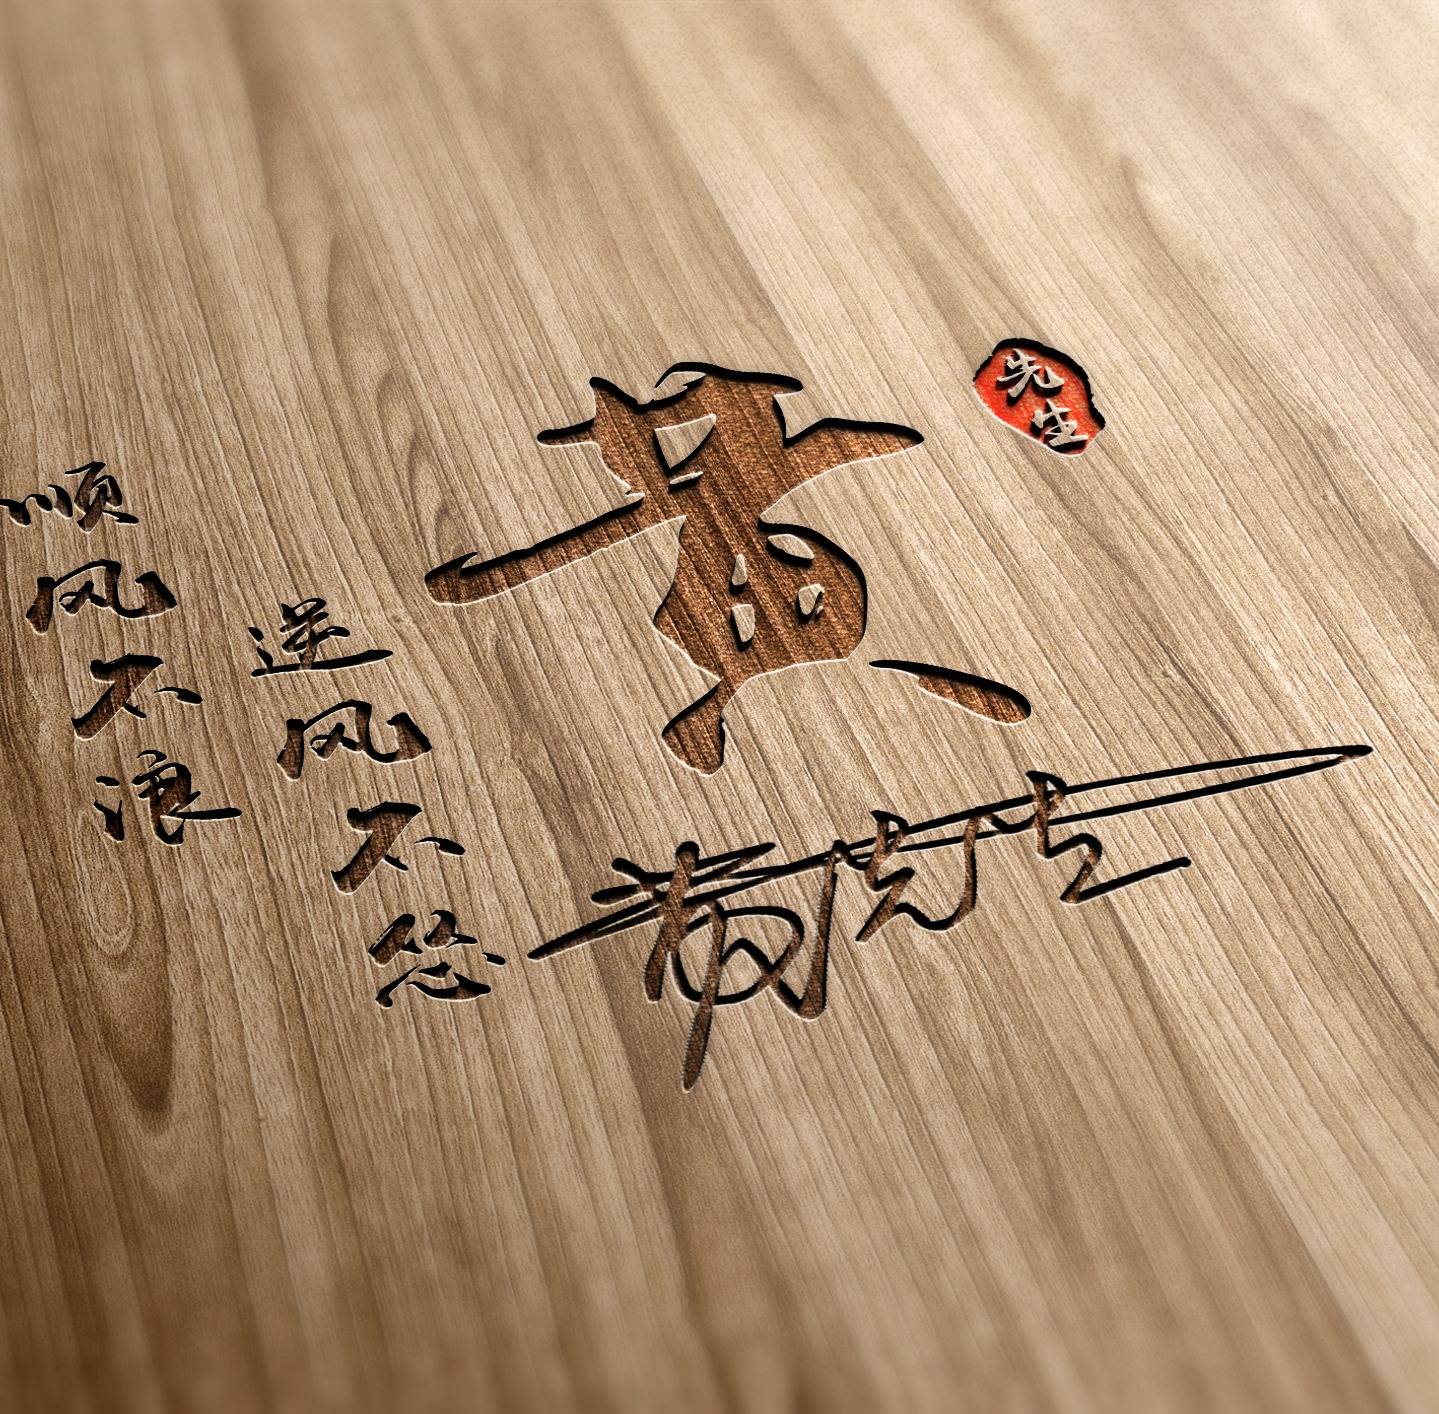 黄
先生
顺风不浪
逆风不怂
黄先生